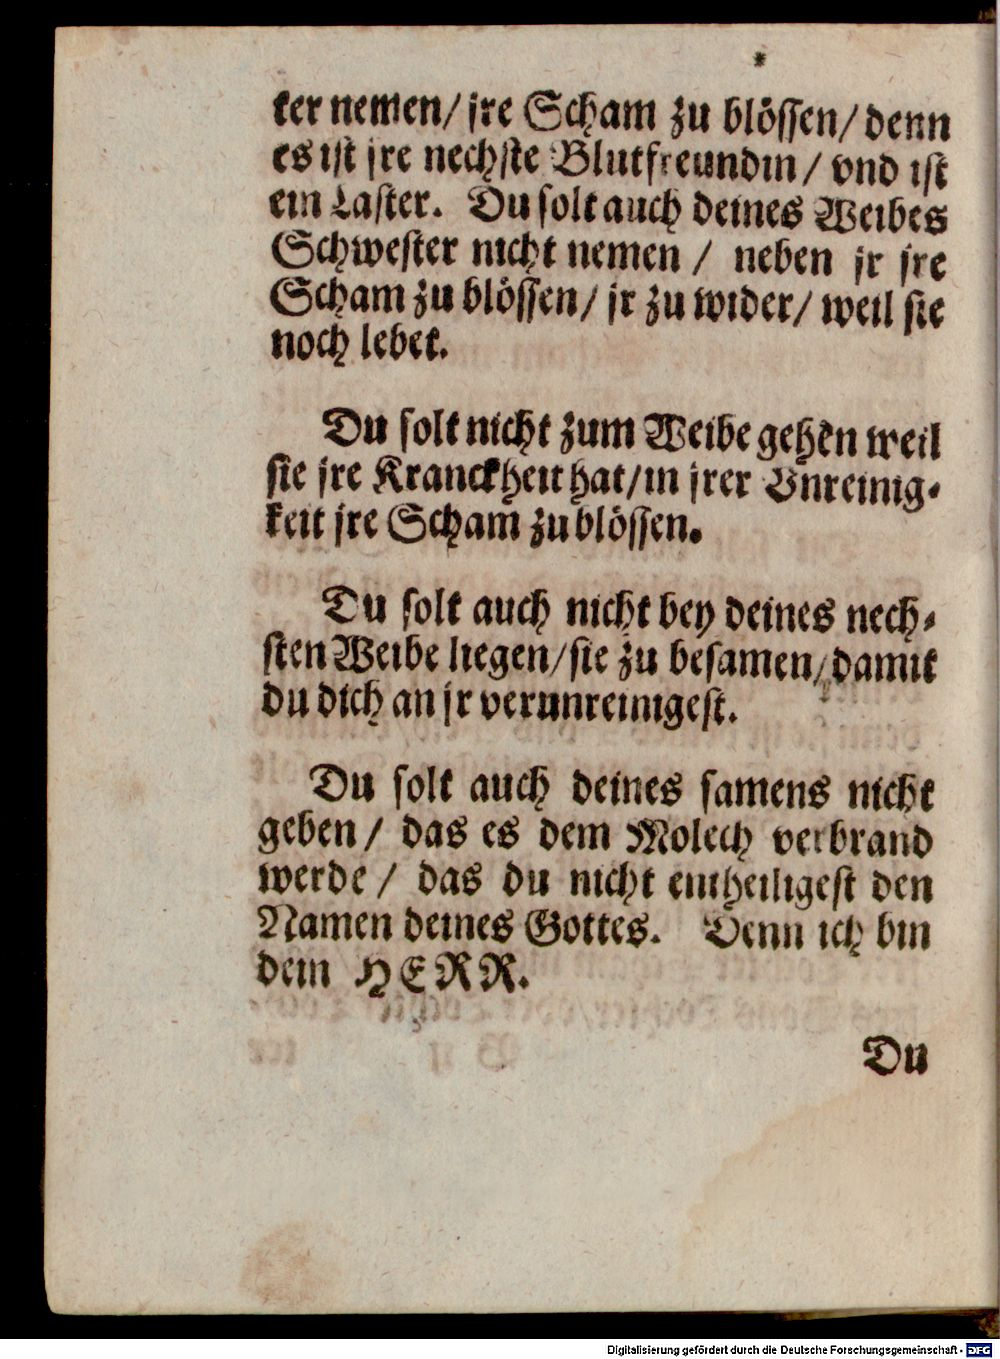 ter nemen/ jre Scham zu blössen/ denn
es ist jre nechste Blutfreundin/ vnd ist
ein Laster. Du solt auch deines Weibes
Schwester nicht nemen / neben jr jre
Scham zu blössen/ jr zu wider/ weil sie
noch lebet.
Du solt nicht zum Weibe gehen weil
sie jre Kranckheit hat/in jrer Vnreinig-
keit jre Scham zu blössen.
Du solt auch nicht bey deines nech-
sten Weibe liegen/sie zu besamen/damit
du dich an jr verunreinigest.
Du solt auch deines samens nicht
geben/ das es dem Molech verbrand
werde/ das du nicht entheiligest den
Namen deines Gottes. Denn ich bin
dein HERR.
Du
Digitalisierung gefördert durch die Deutsche Forschungsgemeinschaft - DFG